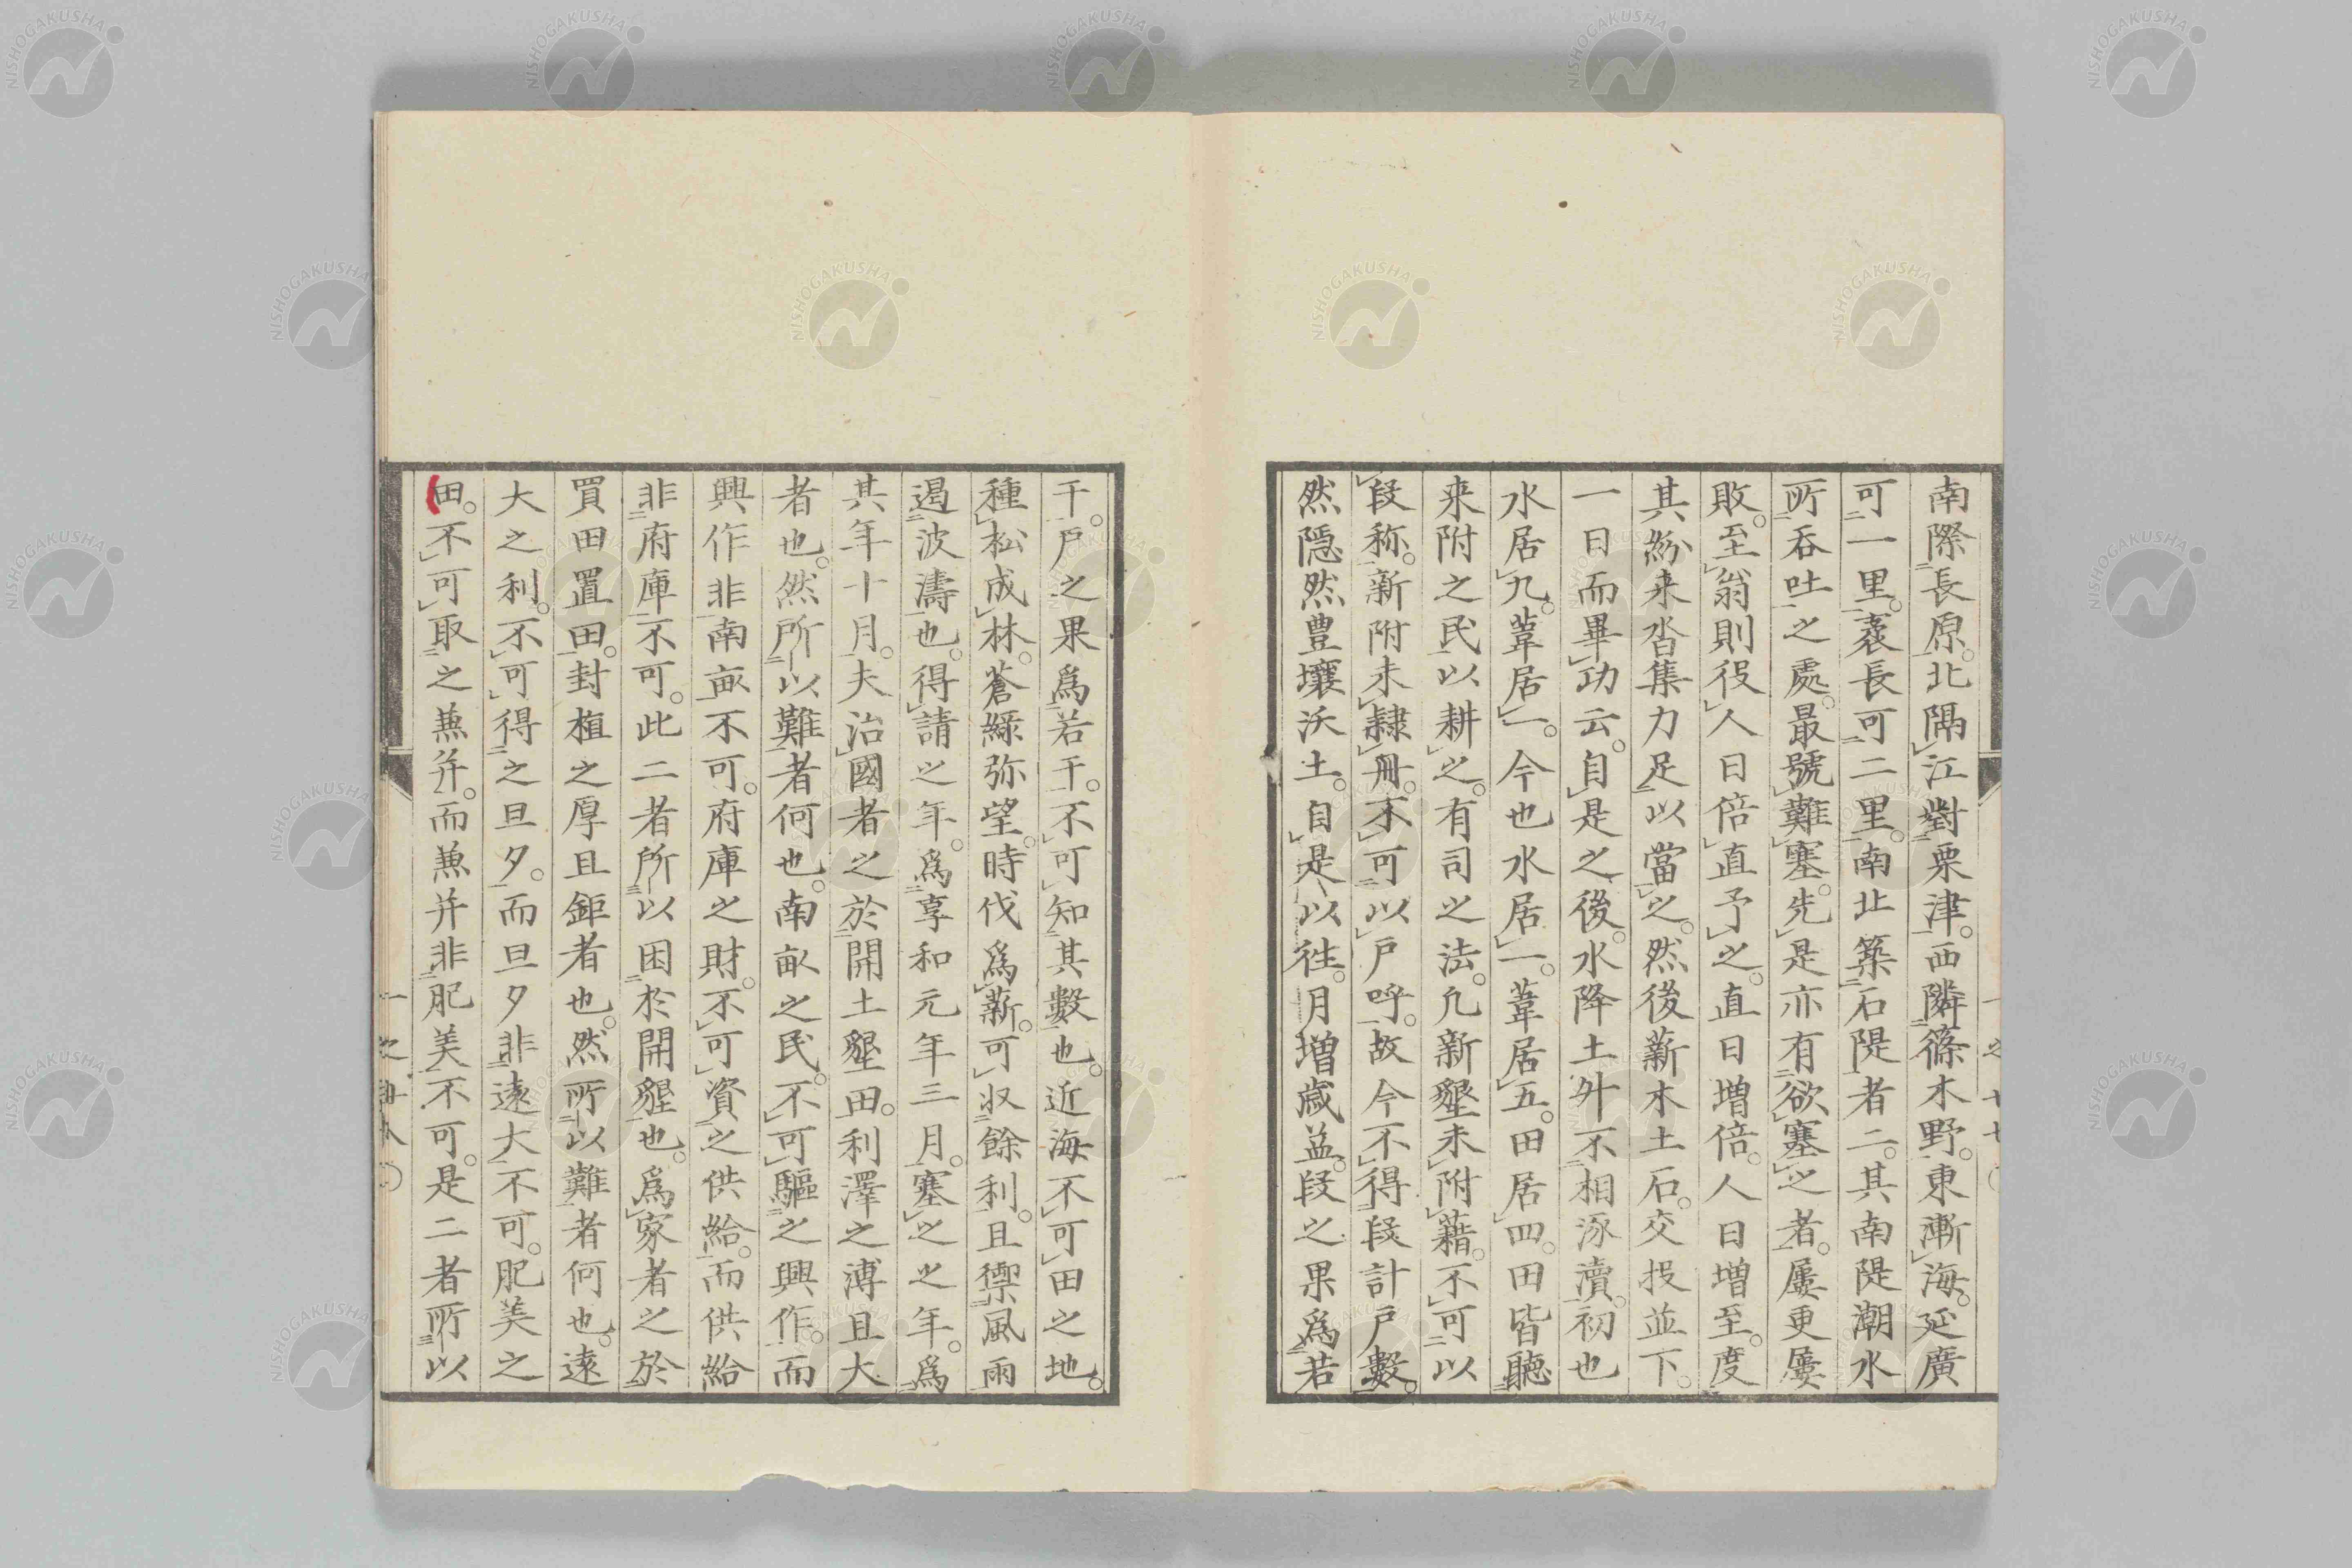 南際長原。北隅江對粟津。西隣篠木野。東漸海。延廣
可一里。袤長可二里。南北築石隄者二。其南隄潮水
所吞吐之處。最號難塞。先是亦有欲塞之者。屢更屢
敗。至翁則役人日倍直予之。直日增倍。人日增至。度
其紛来沓集力足以當之。然後薪木土石。交投並下。
一日而畢功云。自是之後。水降土升不相涿瀆。初也
水居九。葦居一。今也水居一。葦居五。田居四。田皆聽
来附之民以耕之。有司之法。凡新墾未附藉。不可以
段称。新附未隷冊。不可以戶呼。故今不得段計戶數。
然隠然豊壤沃土。自是以徃。月增歳益。段之果爲若
干。戶之果爲若干。不可知其數也。近海不可田之地。
種松成林。蒼緑弥望。時伐爲薪。可収餘利。且禦風雨
遏波濤也。得請之年。爲享和元年三月。塞之之年。爲
其年十月。夫治國者之於開土墾田。利澤之溥且大
者也。然所以難者何也。南畝之民。不可驅之興作。而
興作非南畝不可。府庫之財。不可資之供給。而供給
非府庫不可。此二者所以困於開墾也。爲家者之於
買田置田。封植之厚且鉅者也。然所以難者何也。遠
大之利。不可得之旦夕。而旦夕非遠大不可。肥美之
田。不可取之兼并。而兼并非肥美不可。是二者所以